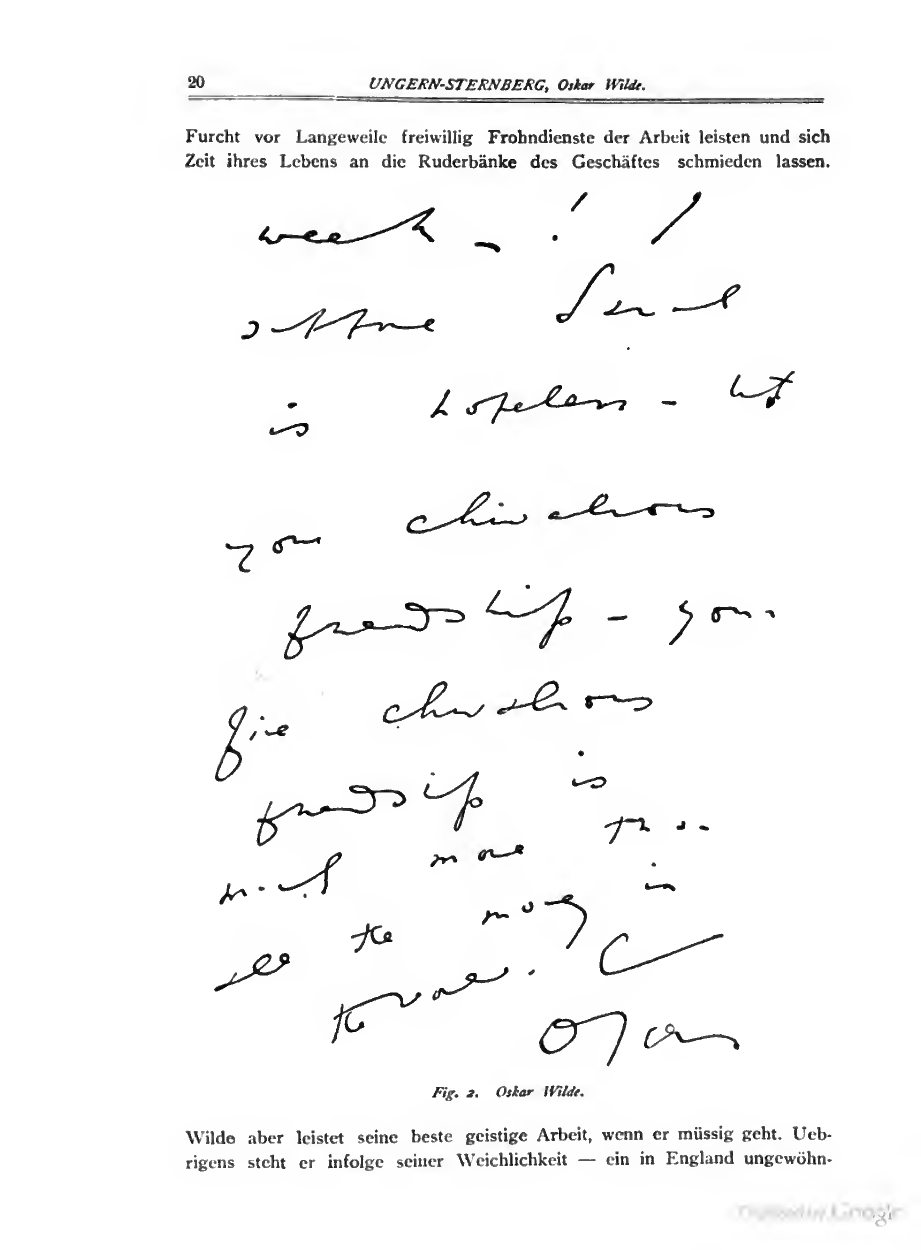 20 UNGERN-STERNBERG, Oskar Wilde.
Furcht vor Langeweile freiwillig Frohndienste der Arbeit leisten und sich
Zeit ihres Lebens an die Ruderbänke des Geschäftes schmieden lassen.
week – ! 
Send
is hopeless – but
your chivalrous
friendship – your
fine chivalrous
friendship is
more than
all the money in
the world.
Oscar
Fig. 2. Oskar Wilde.
Wilde aber leistet seine beste geistige Arbeit, wenn er müssig geht. Ueb-
rigens steht er infolge seiner Weichlichkeit — ein in England ungewöhn-
Digitized by Google